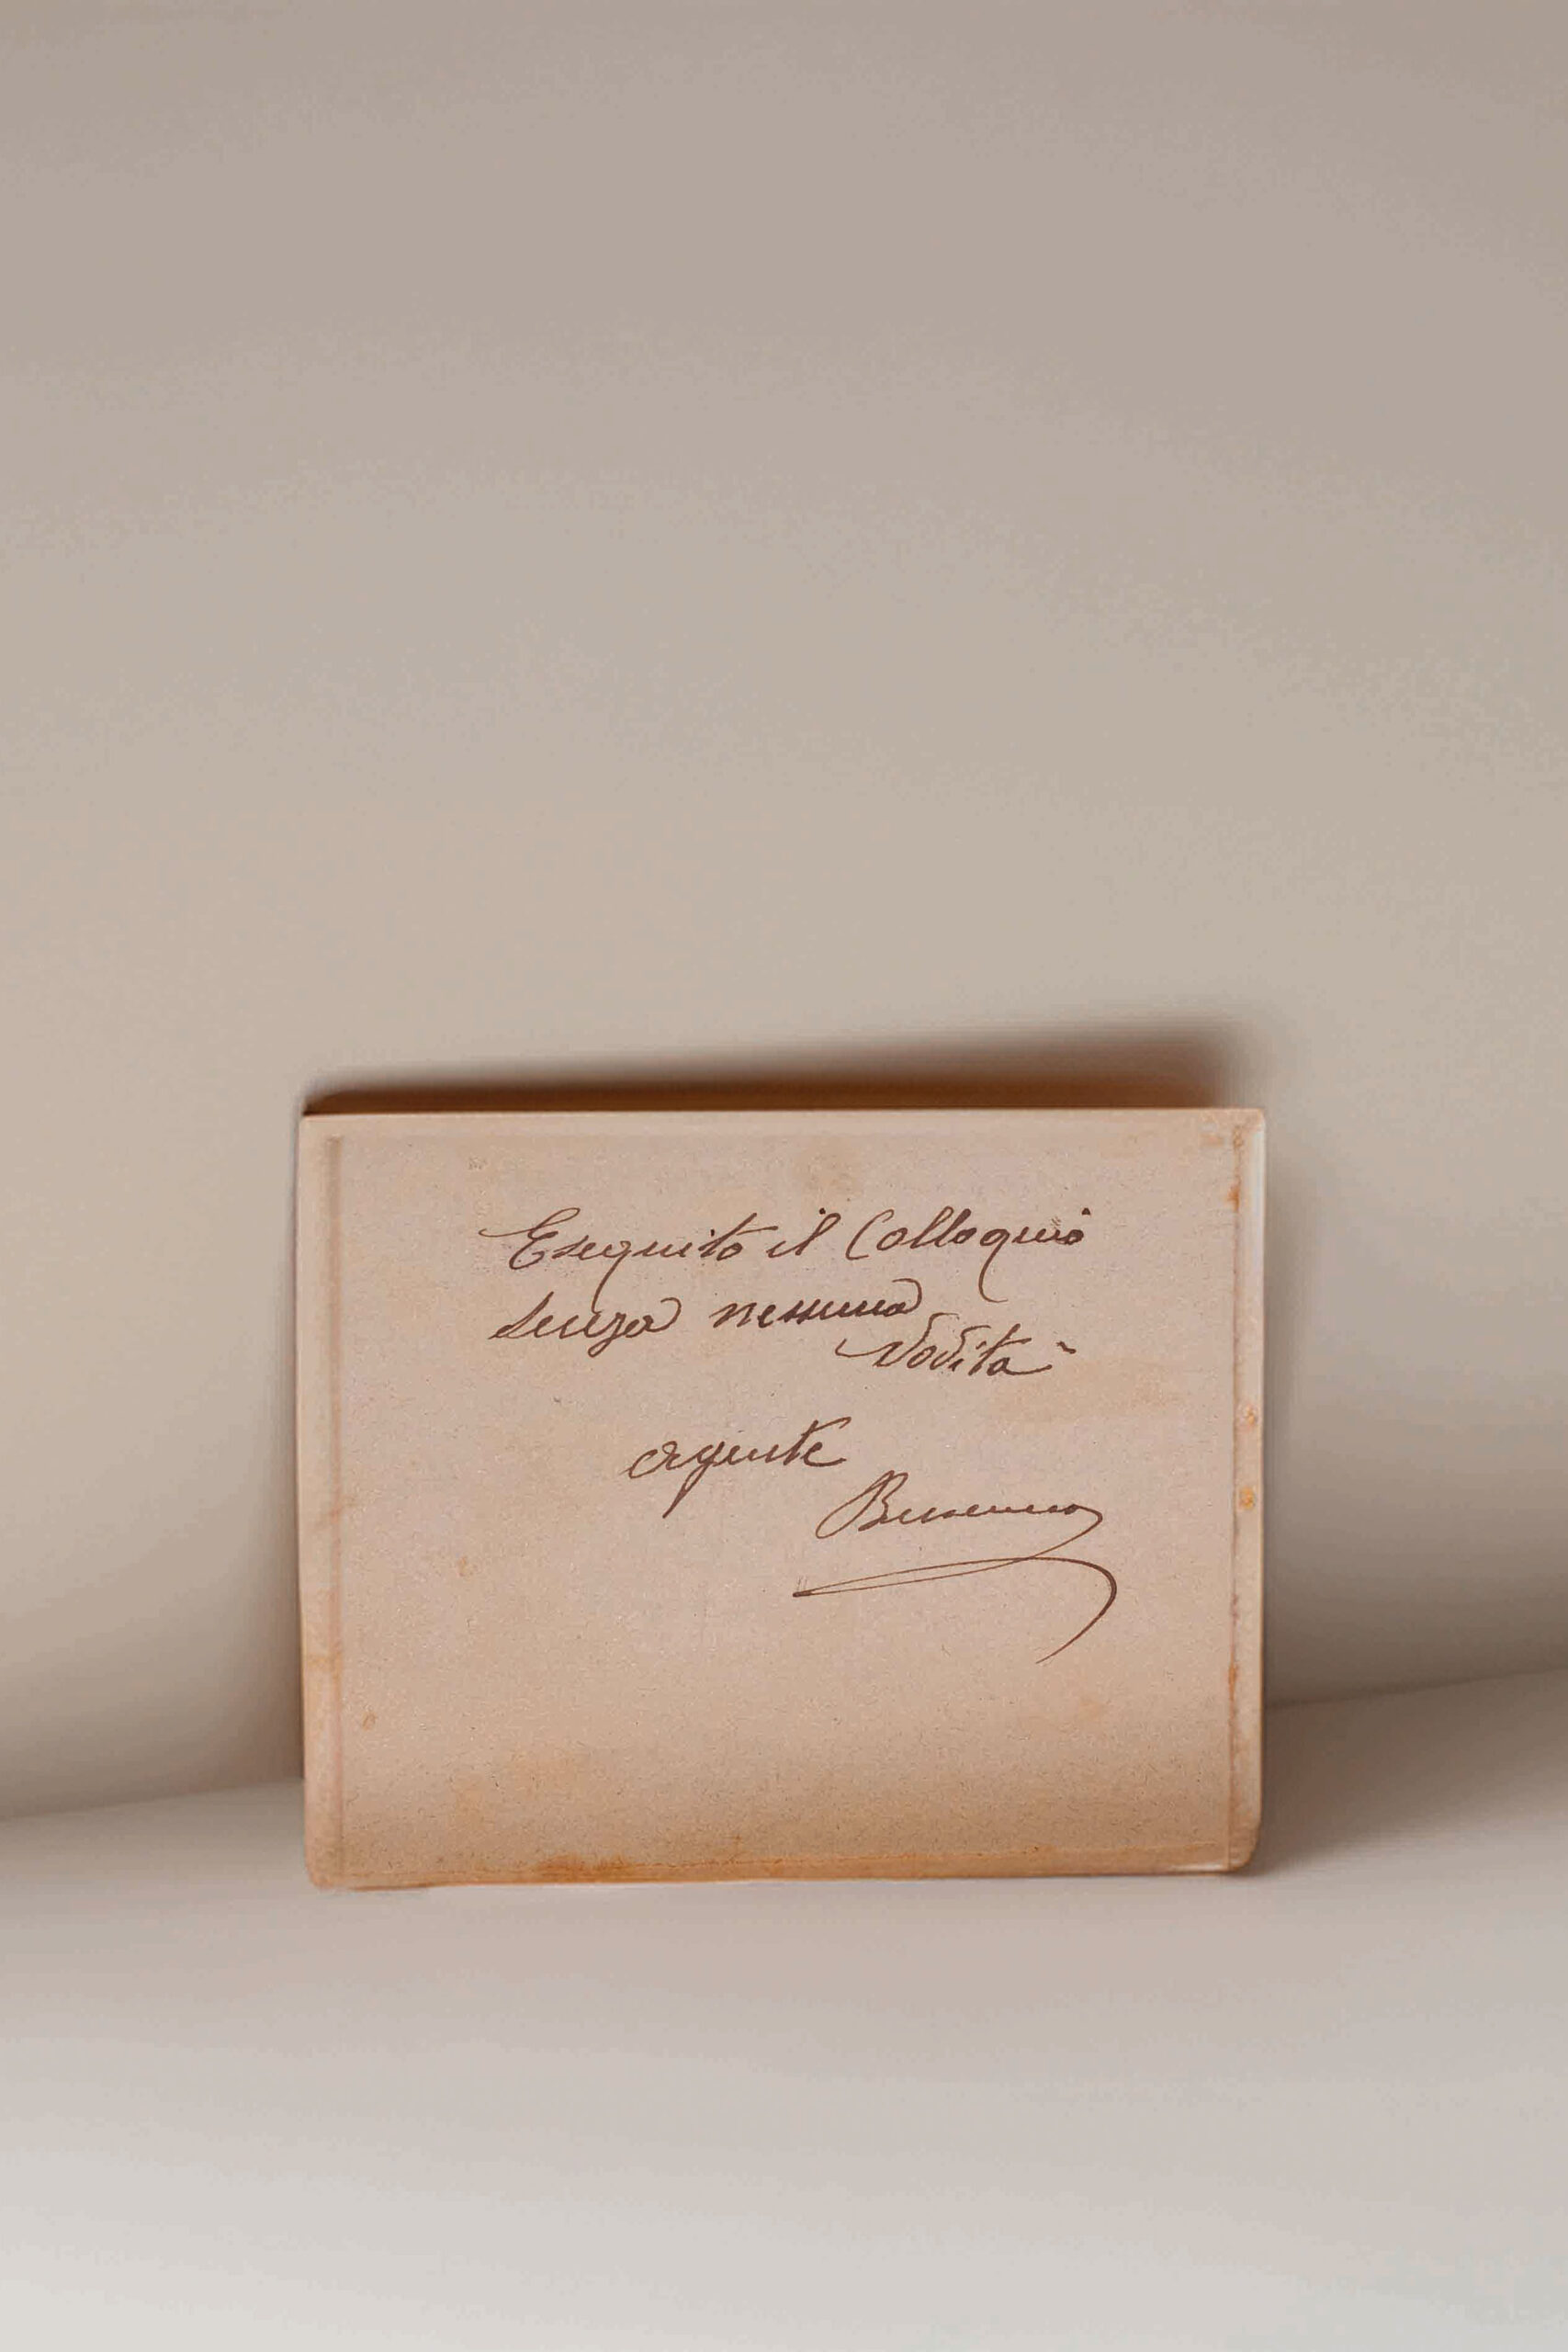 Eseguito il Colloquio
senza nessuna
Novità
agente